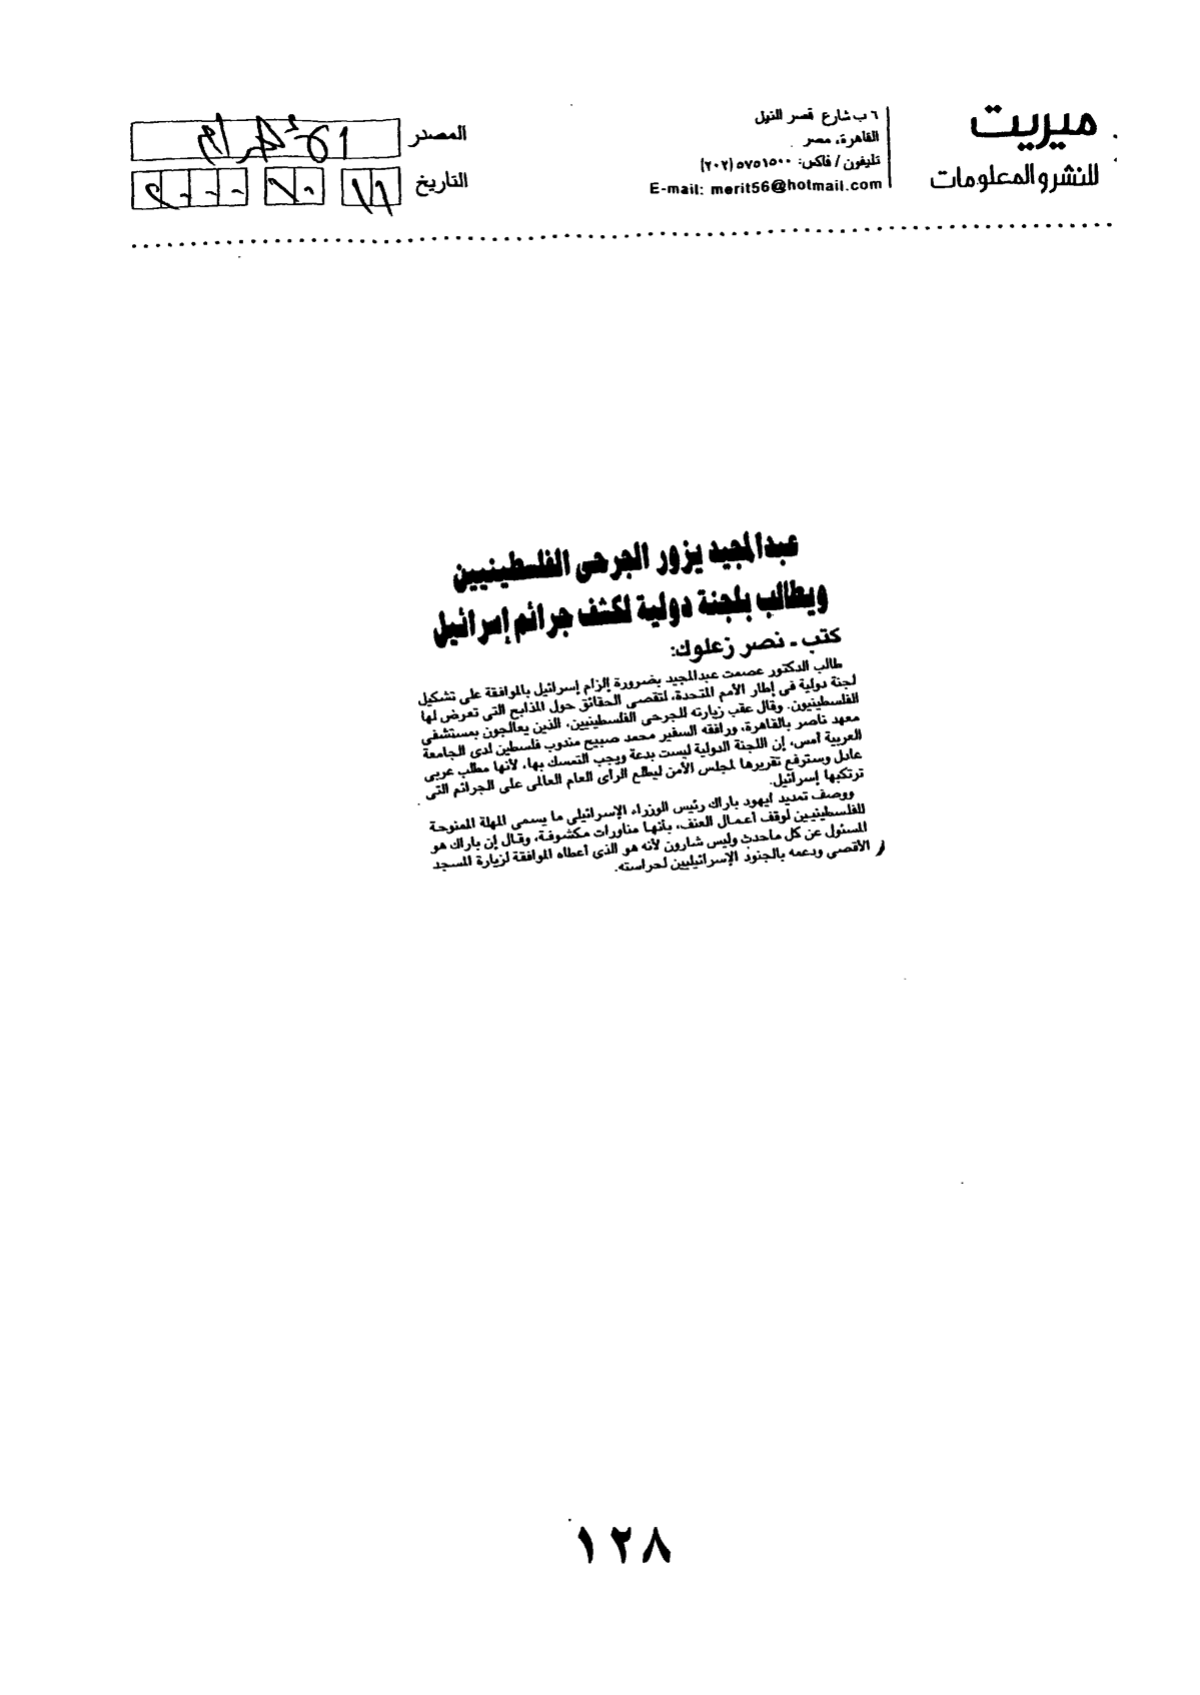 ميريت
للنشر والمعلومات
٦ ب شارع قصر النيل
القاهرة، مصر
تليفون / فاكس: ٥٧٥١٥٠٠ (٢٠٢)
E-mail: merit56@hotmail.com
المصدر الأهرام
التاريخ
عبدالمجيد يزور الجرحى الفلسطينيين
ويطالب بلجنة دولية لكشف جرائم إسرائيل
كتب ـ نصر زعلوك:
طالب الدكتور عصمت عبدالمجيد بضرورة إلزام إسرائيل بالموافقة على تشكيل
لجنة دولية فى إطار الأمم المتحدة، لتقصى الحقائق حول المذابح التى تعرض لها
الفلسطينيون. وقال عقب زيارته للجرحى الفلسطينيين، الذين يعالجون بمستشفى
معهد ناصر بالقاهرة، ورافقه السفير محمد صبيح مندوب فلسطين لدى الجامعة
العربية أمس، إن اللجنة الدولية ليست بدعة ويجب التمسك بها، لأنها مطلب عربى
عادل وسترفع تقريرها لمجلس الأمن ليطلع الرأى العام العالمى على الجرائم التى
ترتكبها إسرائيل.
ووصف تمديد ايهود باراك رئيس الوزراء الإسرائيلى ما يسمى المهلة الممنوحة
للفلسطينيين لوقف أعمال العنف، بأنها مناورات مكشوفة، وقال إن باراك هو
المسئول عن كل ماحدث وليس شارون لأنه هو الذى أعطاه الموافقة لزيارة المسجد
الأقصى ودعمه بالجنود الإسرائيليين لحراسته.
١٢٨